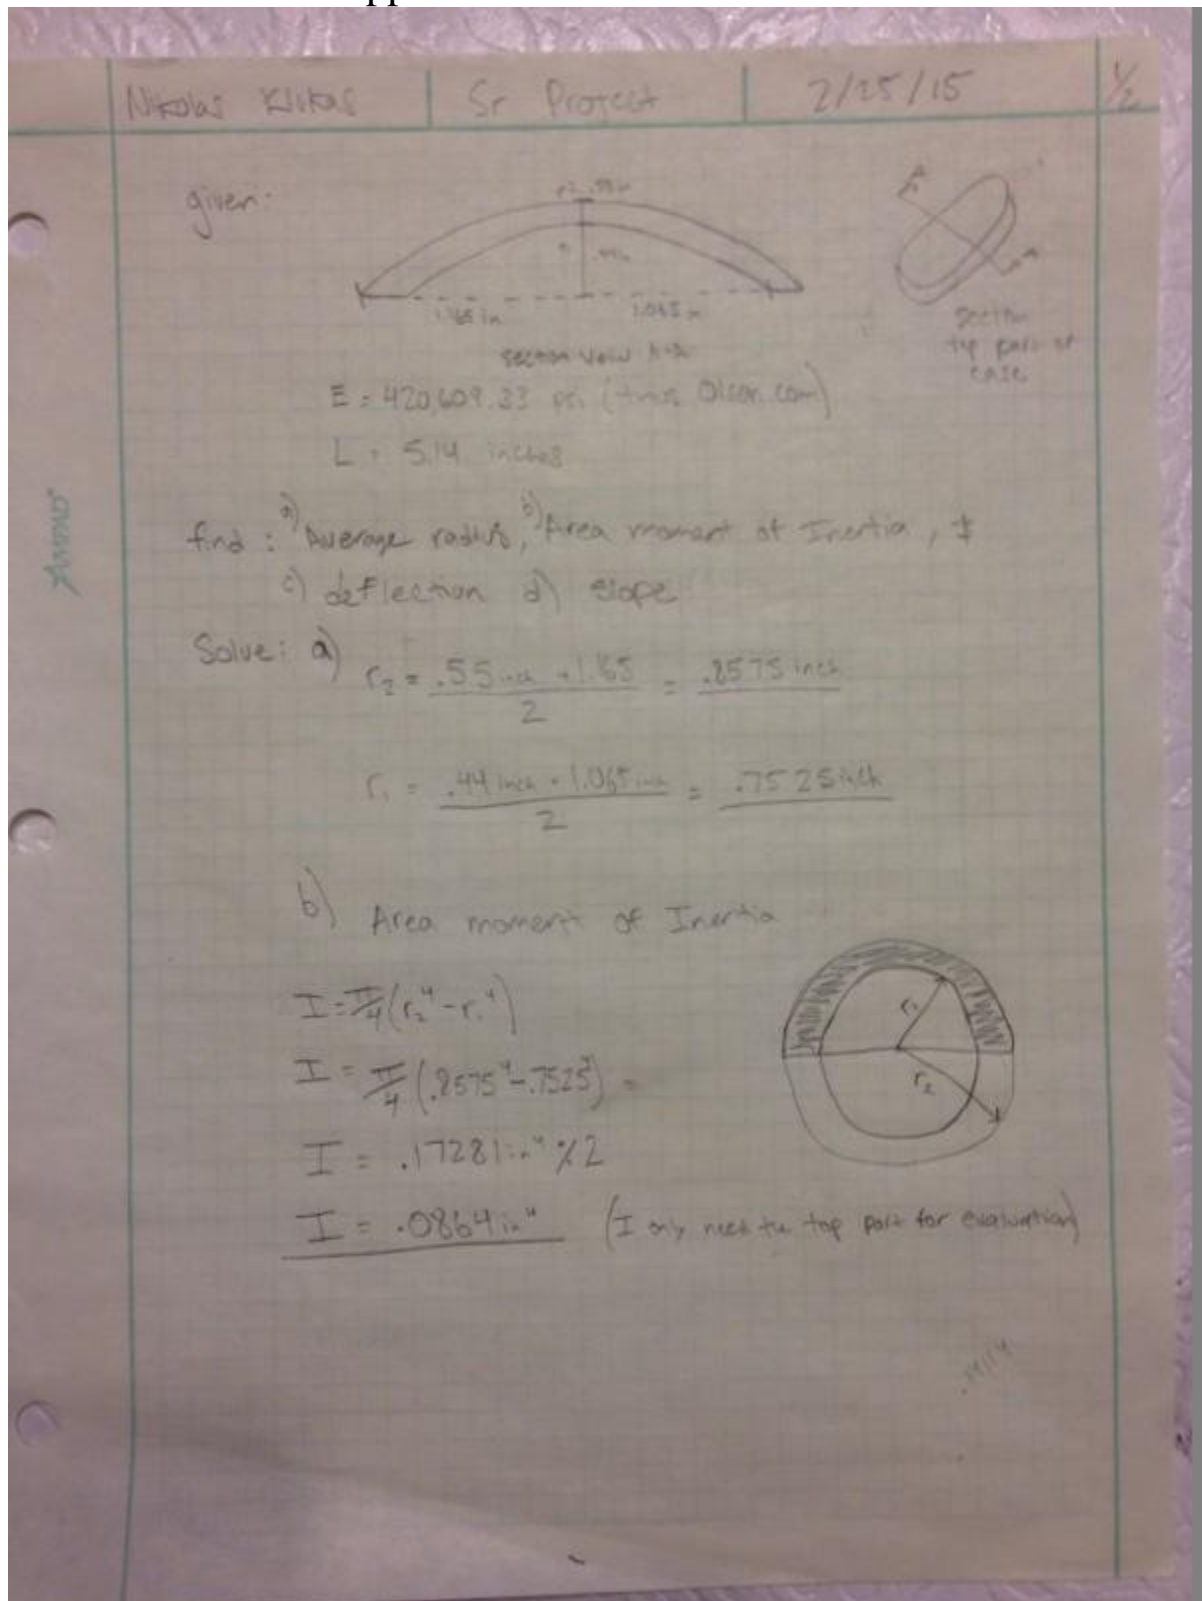 Sr Project
2/25/15
1/2
given:
r= .55in
1.165 in
1.065 in
section view A-A
section
top part of
case
E = 420,609.33 psi (tinius Olsen.com)
L = 5.14 inches
AMPAD
find : a) Average radius, b) Area moment of Inertia, &
c) deflection d) slope
Solve: a)
r₂ = .55 inch + 1.165 / 2 = .8575 inch
r₁ = .44 inch + 1.065 inch / 2 = .7525 inch
b) Area moment of Inertia
I = π/4 (r₂⁴ - r₁⁴)
I = π/4 (.8575⁴ - .7525⁴) =
r₁
r₂
I = .17281 in⁴ % 2
I = .0864 in⁴ (I only need the top part for evaluation)